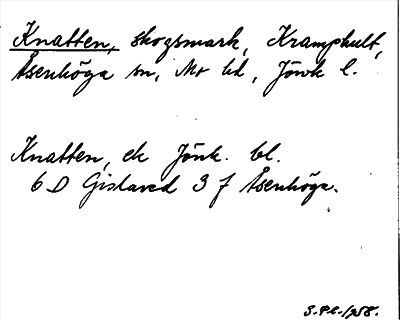 Knatten, skogsmark, Kramphult,
Åsenhöga sn, Mo hd, Jönk l.
Knatten, ek Jönk. bl.
6 D Gislaved 3 f Åsenhöga.
1958.